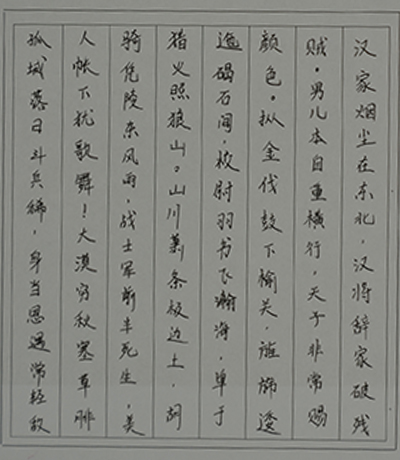 汉家烟尘在东北,汉将辞家破残
贼。男儿本自重横行,天子非常赐
颜色。枞金伐鼓下榆关,旌旆逶
迤碣石间,校尉羽书飞瀚海,单于
猎火照狼山。山川萧条极边土,胡
骑凭陵杂风雨,战士军前半死生,美
人帐下犹歌舞!大漠穷秋塞草腓
孤城落日斗兵稀,身当恩遇常轻敌